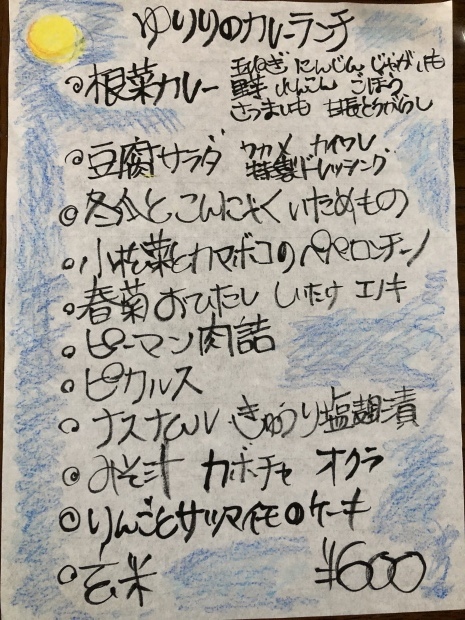 ゆりりのカレーランチ
根菜カレー 玉ねぎ にんじん じゃがいも
里芋 れんこん ごぼう
さつまいも 甘長とうがらし
豆腐サラダ ワカメ カイワレ
特製ドレッシング
冬瓜とこんにゃくいためもの
小松菜とカマボコのペペロンチーノ
春菊おひたし しいたけ エノキ
ピーマン肉詰
ピクルス
ナスナムル きゅうり塩麹漬
みそ汁 カボチャ オクラ
りんごとサツマイモのケーキ
玄米 ¥600